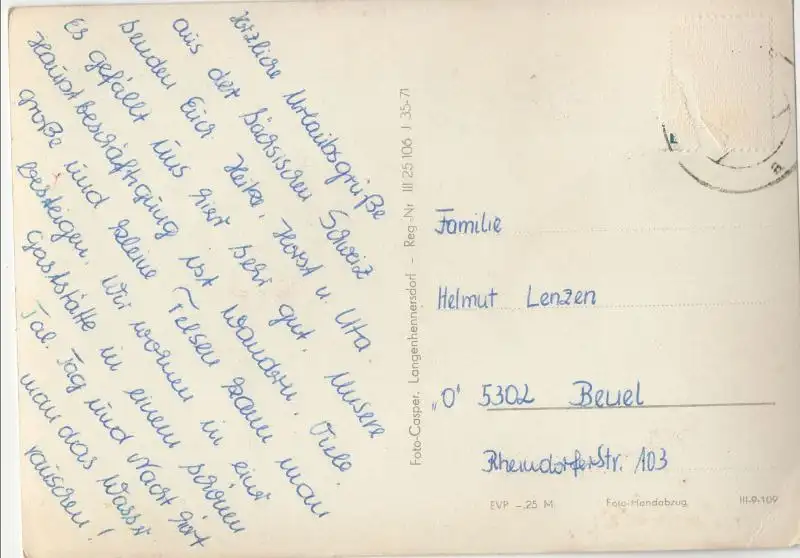 Herzliche Urlaubsgrüße
aus der Sächsischen Schweiz
senden Euch Heike, Horst u. Uta.
Es gefällt uns hier sehr gut. Unsere
Hauptbeschäftigung ist Wandern. Viele
große und kleine Felsen kann man
besteigen. Wir wohnen in einer
Gaststätte in einem schönen
Tal. Tag und Nacht hört
man das Wasser
rauschen!
Foto-Casper, Langenhennersdorf - Reg.-Nr III 25 106 J 35-71
Familie
Helmut Lenzen
„O" 5302 Beuel
Rheindorferstr. 103
EVP -.25 M
Foto-Handabzug
III-9-109